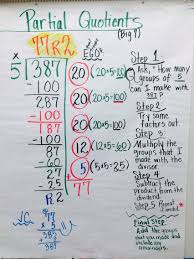 Partial Quotients
(Big 7)
77R2
5 387
-100
287
-100
187
-100
87
-60
27
-25
R.2
20 (20x5=100)
20 (20x5=100)
20 (20x5=100)
12 (12x5=60)
5 (5x5=25)
77
Step 1
Ask, "How many
groups of 5
can I make with
387?
Step 2
Try some
factors out.
Step 3
Multiply the
groups that I
made with the
divisor
Step 4
Subtract the
product from the
dividend.
Step 5 Repeat
Final Step
Add the groups
that you made and
include any
remainders.
77
x 5
385
+ 2
387